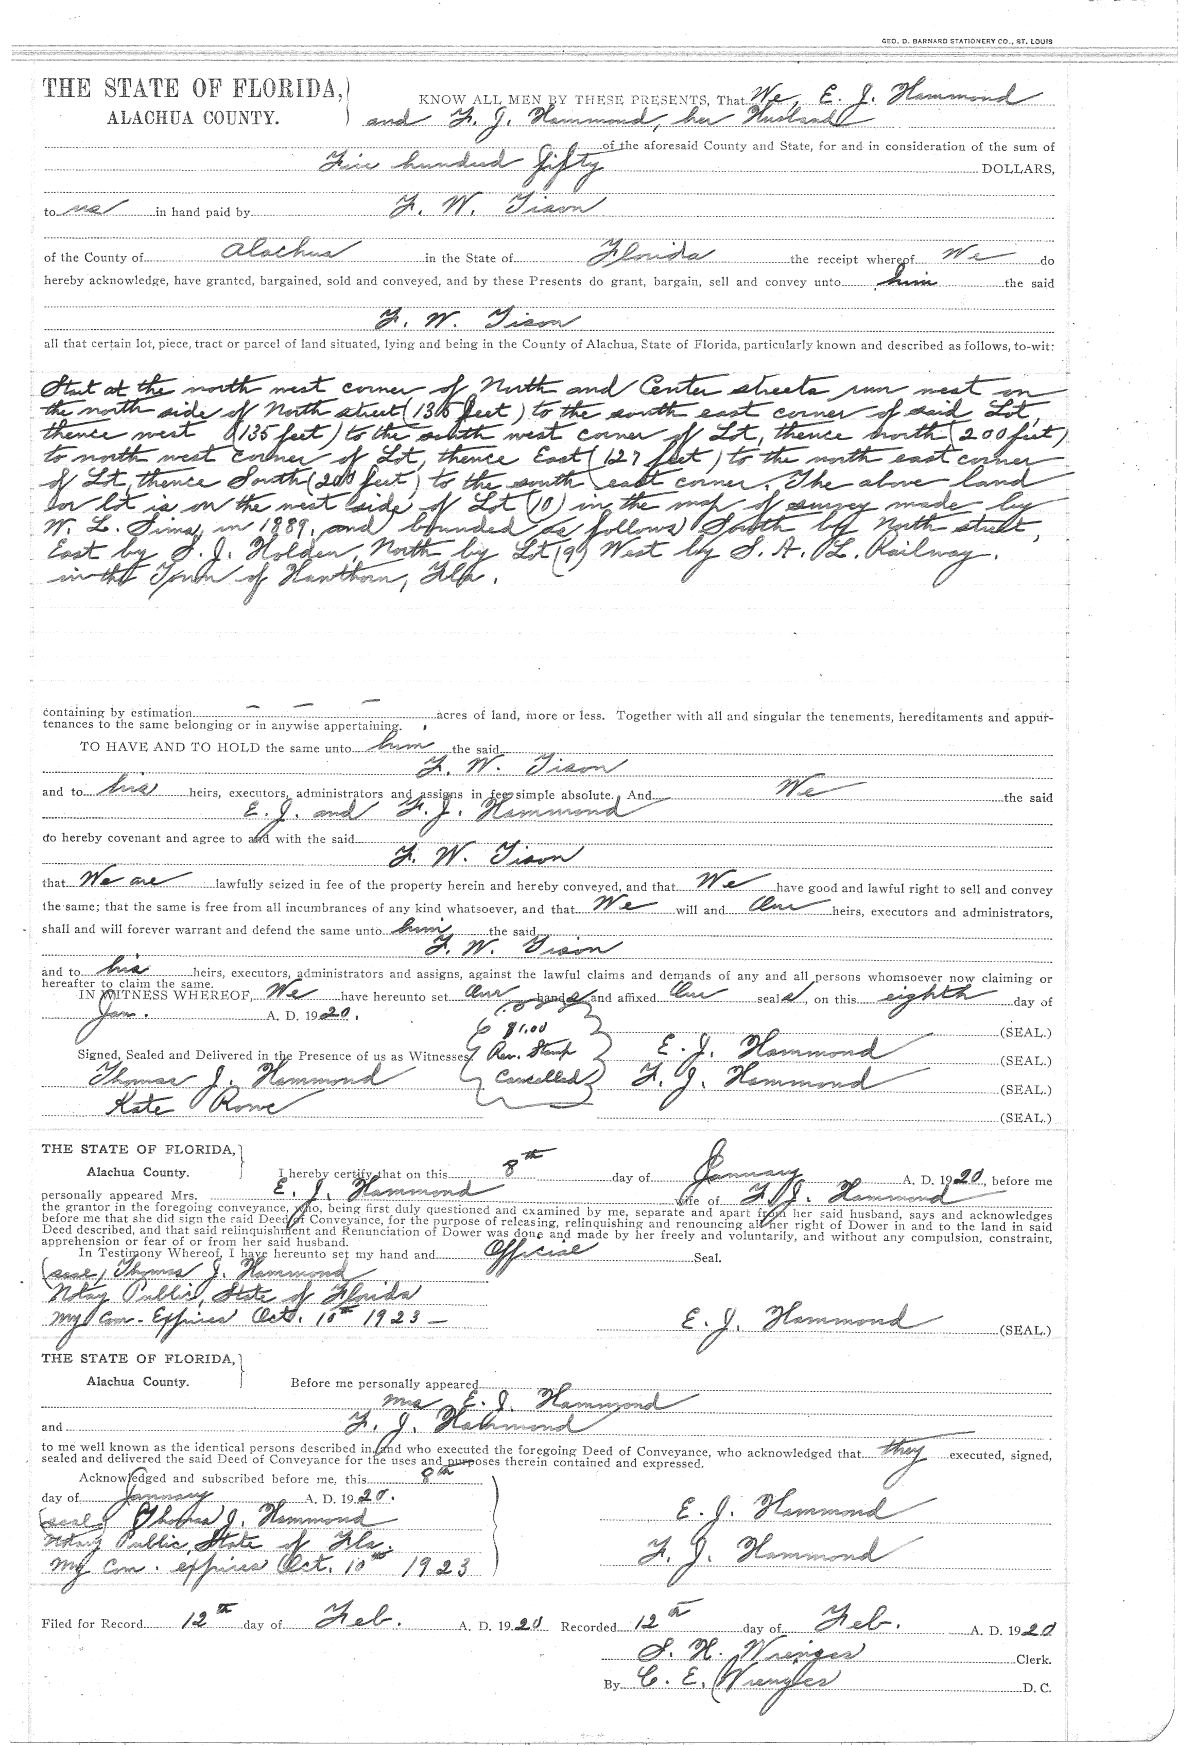 GEO. D. BARNARD STATIONERY CO., ST. LOUIS
THE STATE OF FLORIDA,
ALACHUA COUNTY.
KNOW ALL MEN BY THESE PRESENTS, That We, E. J. Hammond
and F. J. Hammond, her Husband
of the aforesaid County and State, for and in consideration of the sum of
Five hundred fifty DOLLARS,
to us in hand paid by F. W. Tison
of the County of Alachua in the State of Florida the receipt whereof We do
hereby acknowledge, have granted, bargained, sold and conveyed, and by these Presents do grant, bargain, sell and convey unto him the said
F. W. Tison
all that certain lot, piece, tract or parcel of land situated, lying and being in the County of Alachua, State of Florida, particularly known and described as follows, to-wit:
Start at the north west corner of North and Center streets run west on
the north side of North street (135 feet) to the south east corner of said Lot,
thence west (135 feet) to the south west corner of Lot, thence north (200 feet)
to north west corner of Lot, thence East (127 feet) to the north east corner
of Lot, thence South (200 feet) to the south east corner. The above land
or lot is on the west side of Lot (10) in the map of survey made by
W. L. Sims, in 1889, and bounded as follows South by North street,
East by S. J. Holden, North by Lot (9) West by S. A. L. Railway.
in the Town of Hawthorn, Fla.
containing by estimation — — — acres of land, more or less. Together with all and singular the tenements, hereditaments and appur-
tenances to the same belonging or in anywise appertaining.
TO HAVE AND TO HOLD the same unto him the said
F. W. Tison
and to his heirs, executors, administrators and assigns in fee simple absolute. And We the said
E. J. and F. J. Hammond
do hereby covenant and agree to and with the said
F. W. Tison
that We are lawfully seized in fee of the property herein and hereby conveyed, and that We have good and lawful right to sell and convey
the same; that the same is free from all incumbrances of any kind whatsoever, and that We will and Our heirs, executors and administrators,
shall and will forever warrant and defend the same unto him the said
F. W. Tison
and to his heirs, executors, administrators and assigns, against the lawful claims and demands of any and all persons whomsoever now claiming or
hereafter to claim the same.
IN WITNESS WHEREOF, We have hereunto set Our hands and affixed Our seals, on this eighth day of
Jan. A. D. 1920.
(SEAL.)
$1.00
Signed, Sealed and Delivered in the Presence of us as Witnesses Rev. Stamp E. J. Hammond (SEAL.)
Thomas J. Hammond Cancelled F. J. Hammond (SEAL.)
Kate Rowe (SEAL.)
THE STATE OF FLORIDA,
Alachua County.
I hereby certify that on this 8th day of January A. D. 1920, before me
personally appeared Mrs. E. J. Hammond wife of F. J. Hammond
the grantor in the foregoing conveyance, who, being first duly questioned and examined by me, separate and apart from her said husband, says and acknowledges
before me that she did sign the raid Deed of Conveyance, for the purpose of releasing, relinquishing and renouncing all her right of Dower in and to the land in said
Deed described, and that said relinquishment and Renunciation of Dower was done and made by her freely and voluntarily, and without any compulsion, constraint,
apprehension or fear of or from her said husband.
In Testimony Whereof, I have hereunto set my hand and Official Seal.
(seal) Thomas J. Hammond
Notay Public, State of Florida
My Com. Expires Oct. 10th 1923 — E. J. Hammond (SEAL.)
THE STATE OF FLORIDA,
Alachua County.
Before me personally appeared
Mrs E. J. Hammond
and F. J. Hammond
to me well known as the identical persons described in and who executed the foregoing Deed of Conveyance, who acknowledged that they executed, signed,
sealed and delivered the said Deed of Conveyance for the uses and purposes therein contained and expressed.
Acknowledged and subscribed before me, this 8th
day of January A. D. 1920.
(seal) Thomas J. Hammond E. J. Hammond
Notary Public, State of Fla.
My Com. expires Oct. 10th 1923 F. J. Hammond
Filed for Record 12th day of Feb. A. D. 1920 Recorded 12th day of Feb. A. D. 1920
S. H. Wienges Clerk.
By C. E. Wienges D. C.